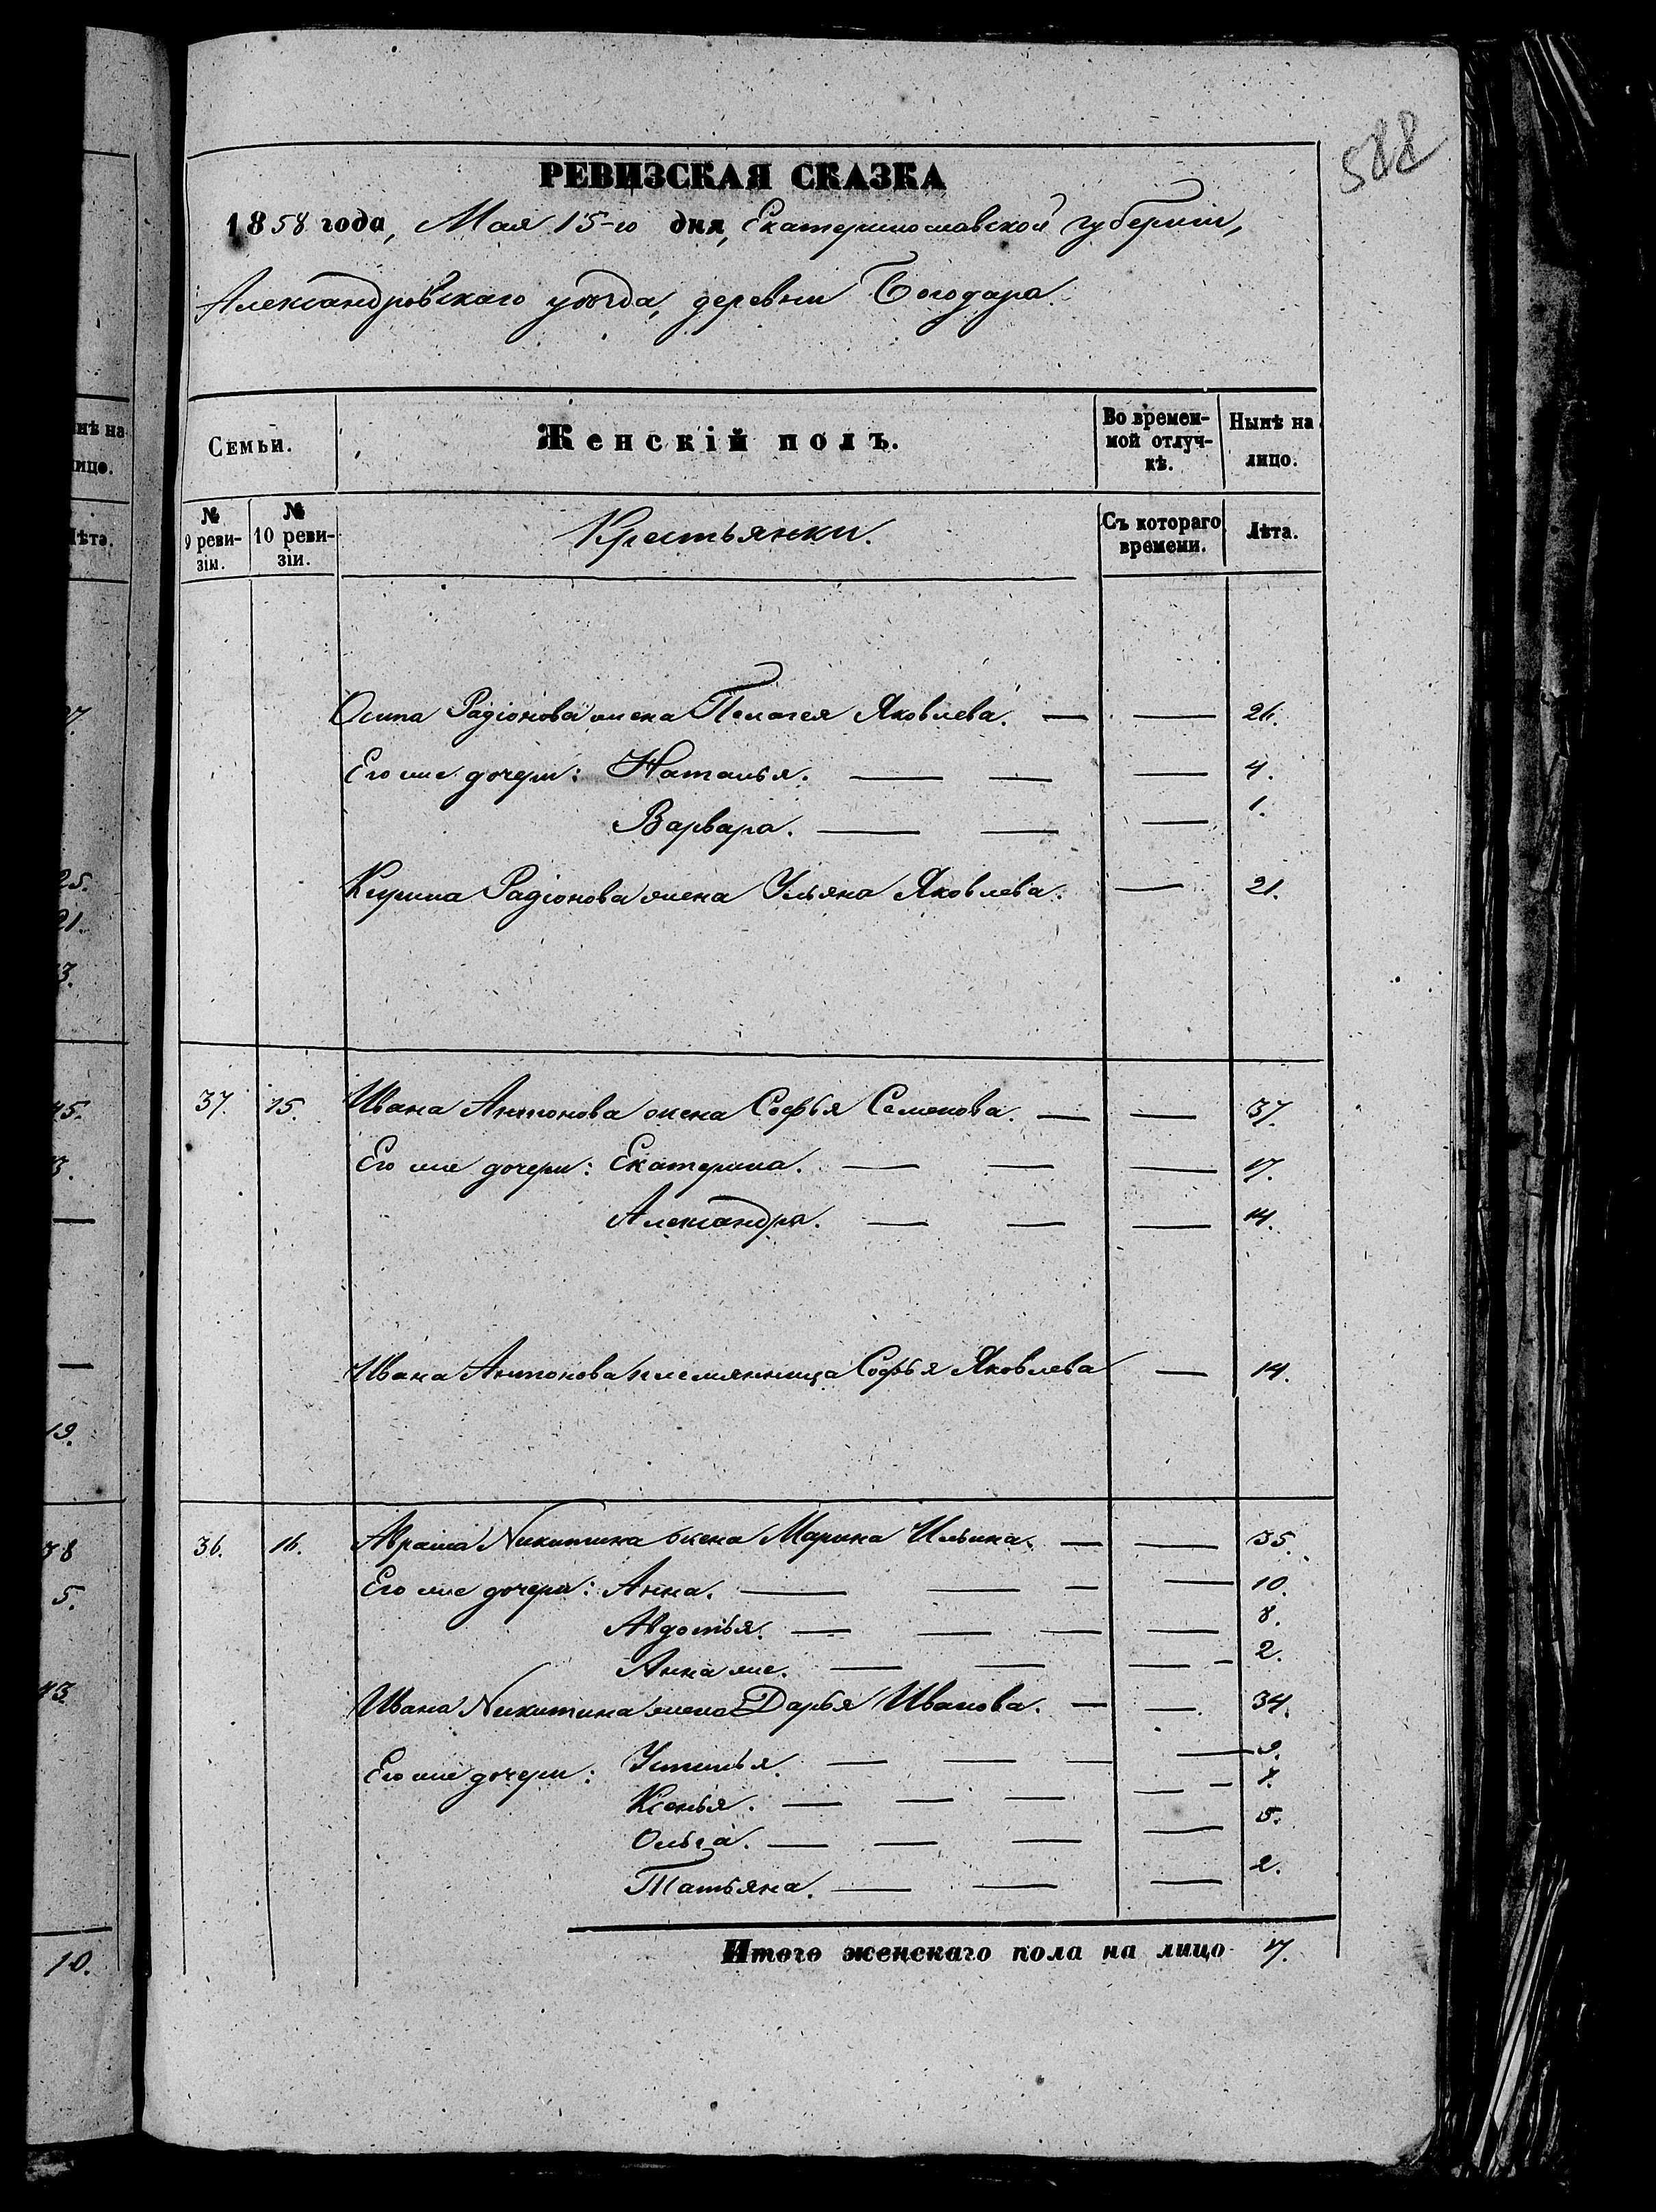 588
РЕВИЗСКАЯ СКАЗКА
1858 года, Мая 15-го дня, Екатеринославской губерніи,
Александровскаго уѣзда, деревни Богодара.
Семьи. Женскій полъ. Во времен-ной отлуч-кѣ. Нынѣ на лицо.
№ 9 реви-зіи. № 10 реви-зіи. Крестьянки. Съ котораго времени. Лѣта.
Осипа Радіонова жена Пелагея Яковлева. — — 26.
Его же дочери: Наталья. — — — 4.
Варвара. — — — 1.
Кирила Радіонова жена Ульяна Яковлева. — 21.
37. 15. Ивана Антонова жена Софья Семенова. — — 37.
Его же дочери: Екатерина. — — — 17.
Александра. — — — 14.
Ивана Антонова племянница Софья Яковлева — 14.
36. 16. Аврама Никитина жена Марина Ильина. — — 35.
Его же дочери: Анна. — — — — 10.
Авдотья. — — — — 8.
Анна же. — — — — 2.
Ивана Никитина жена Дарья Иванова. — — 34.
Его же дочери: Устинья. — — — — 9.
Ксенья. — — — — — 7.
Ольга. — — — — 5.
Татьяна. — — — 2.
Итого женскаго пола на лицо 17.